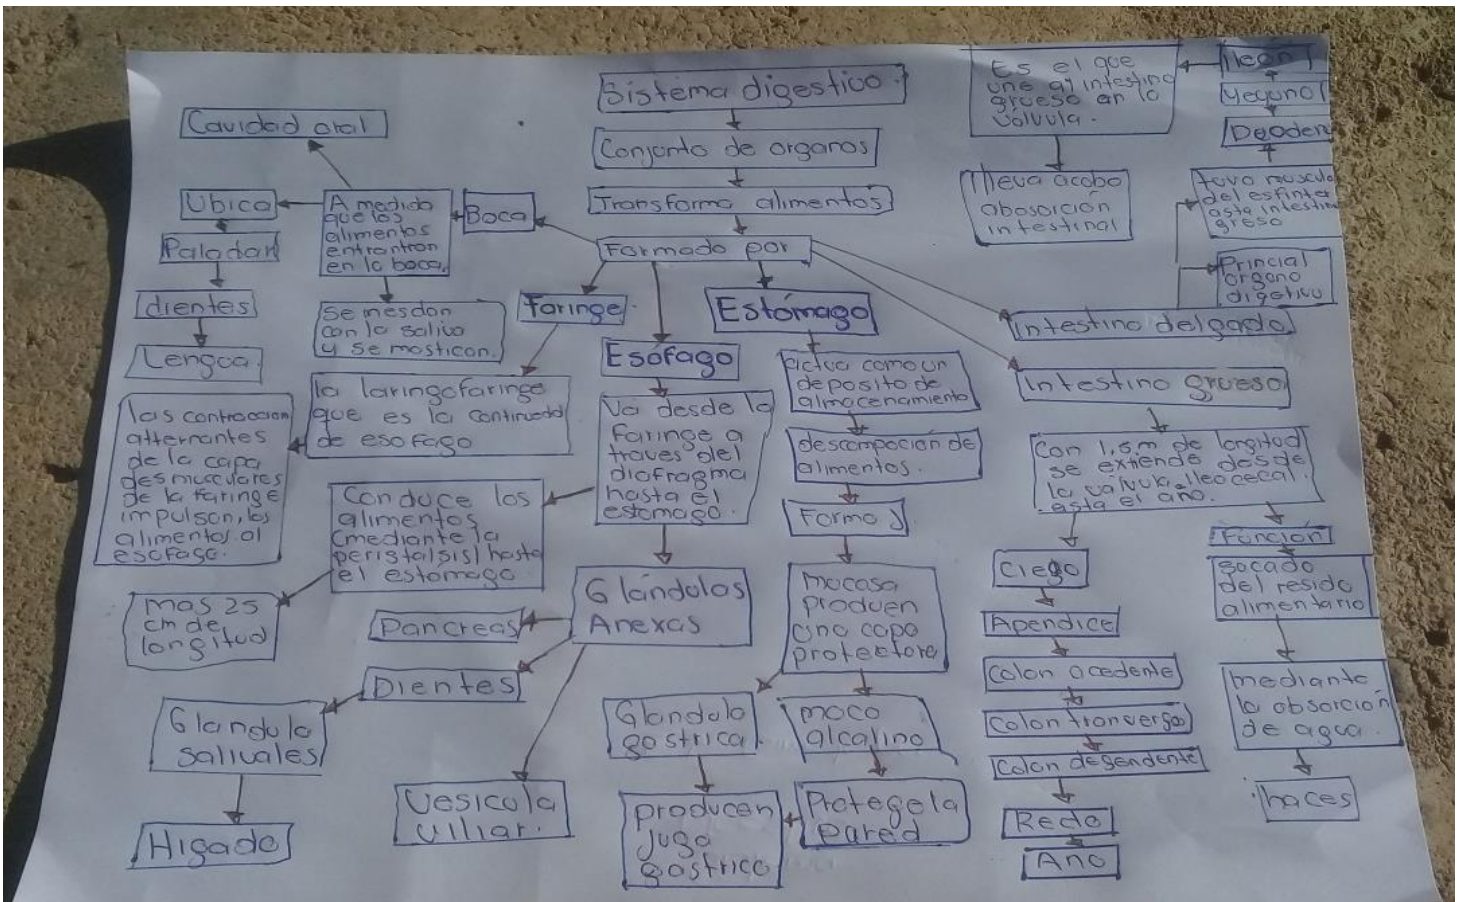 Sistema digestivo.
Conjunto de organos
Transforma alimentos
Formado por
Boca
A medida
que los
alimentos
entrantron
en la boca.
Cavidad oral
Ubica
Paladan
dientes
Lengua
Se mesdan
con la saliva
y se mastican.
Faringe
la laringofaringe
que es la continuedad
de esofago
las contraccion
alternantes
de la capa
des musculares
de la faringe
impulsan, los
alimentos al
esofago.
Esófago
Va desde la
faringe a
traves del
diafragma
hasta el
estomago.
Conduce los
alimentos
(mediante la
peristalsis) hasta
el estomago
mas 25
cm de
longitud
Glándulas
Anexas
Pancreas
Dientes
Glandula
salivales
Higado
Vesicula
viliar.
Estómago
actua como un
deposito de
almacenamiento
descompoción de
alimentos.
Forma
mocasa
produen
una capa
protectora
Glandula
gastrica
moco
alcalino
producen
jugo
gastrico
Protege la
pared
Intestino delgado
Princial
órgano
digetivo
tuvo muscula
del esfinter
asta intestino
greso
Deoden
Yeguno
Ileon
Es el que
une al intestino
grueso an la
valvula.
lleva acabo
abosorción
intestinal
Intestino grueso
Con 1,5 m de longitud
se extiende desde
la valvula ileocecal.
asta el ano.
Ciego
Apendice
Colon acedente
Colon tranverso
Colon desendente
Recto
Ano
Función
socado
del resido
alimentario
mediante
la absorción
de agua.
haces